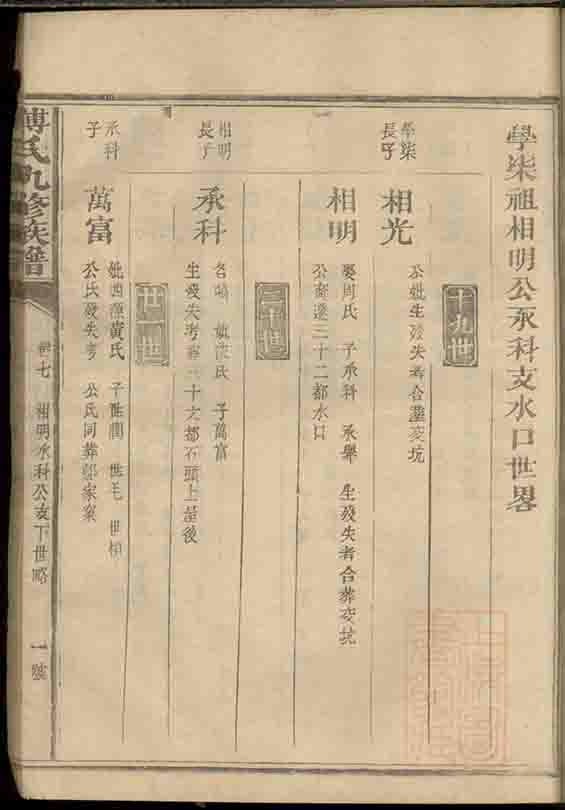 學柒祖相明公承科支水口世畧
十九世
學柒
長子
相光
公妣生殁失考合塟坟坑
相明
娶周氏 子承科 承舉 生殁失考合葬坟坑
公裔遷三十二都水口
三十世
相明
長子
承科
生殁失考葬三十六都石頭上屋後
廿一世
承科
子
萬富
妣西源黄氏
公氏殁失考 公氏同葬鄒家窠
傅氏九修族譜
卷七 相明承科公支下世略 一號